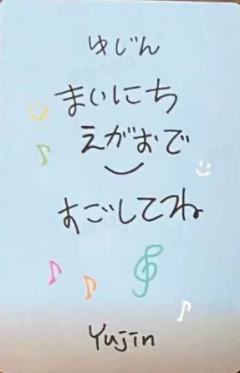 ゆじん
まいにち
えがおで
すごしてね
Yujin